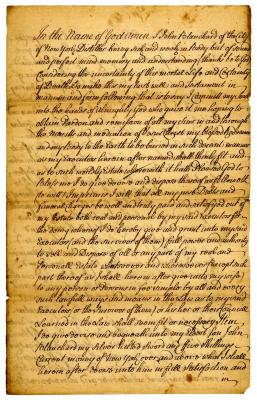 In the Name of God Amen I John Blanchard of the City
of New York Distiller being sick and weak in Body but of sound
and perfect mind memory and understanding (thanks be to God)
Considering the uncertainty of this mortal Life and Certainty
of Death do make this my last will and testament in
manner and form following that is to say I commit my Soul
into the hands of Almighty God who gave it me hoping to
obtain Pardon and remission of all my sins in and through
the merits and mediation of Jesus Christ my blessed Redeemer
and my body to the Earth to be buried in such decent manner
as my Executors herein after named shall think fit and
as to such worldly Estate wherewith it hath pleased God to
bless me I do give devise and dispose thereof as followeth
to wit Imprimis I will that all my just Debts and
funeral Charges be well and truly paid and satisfied out of
my Estate both real and personal by my said Executors for
the doing whereof I do hereby give and grant unto my said
Executors (and the survivor of them) full power and authority
to sell and dispose of all or any part of my real and
Personal Estate whatsoever and wheresoever (Except such
part thereof as I shall herein after give unto my wife)
to any person or persons in fee simple by all and every
such lawful ways and means in the Law as to my said
Executors or the Survivor of them or his her or their Council
Learned in the Law shall seem fit or necessary Item
I do give devise and bequeath unto my Eldest Son John
Blanchard my Silver hilted sword and five shillings
Current money of New York over and above what I shall
herein after devise unto him in full satisfaction and
in